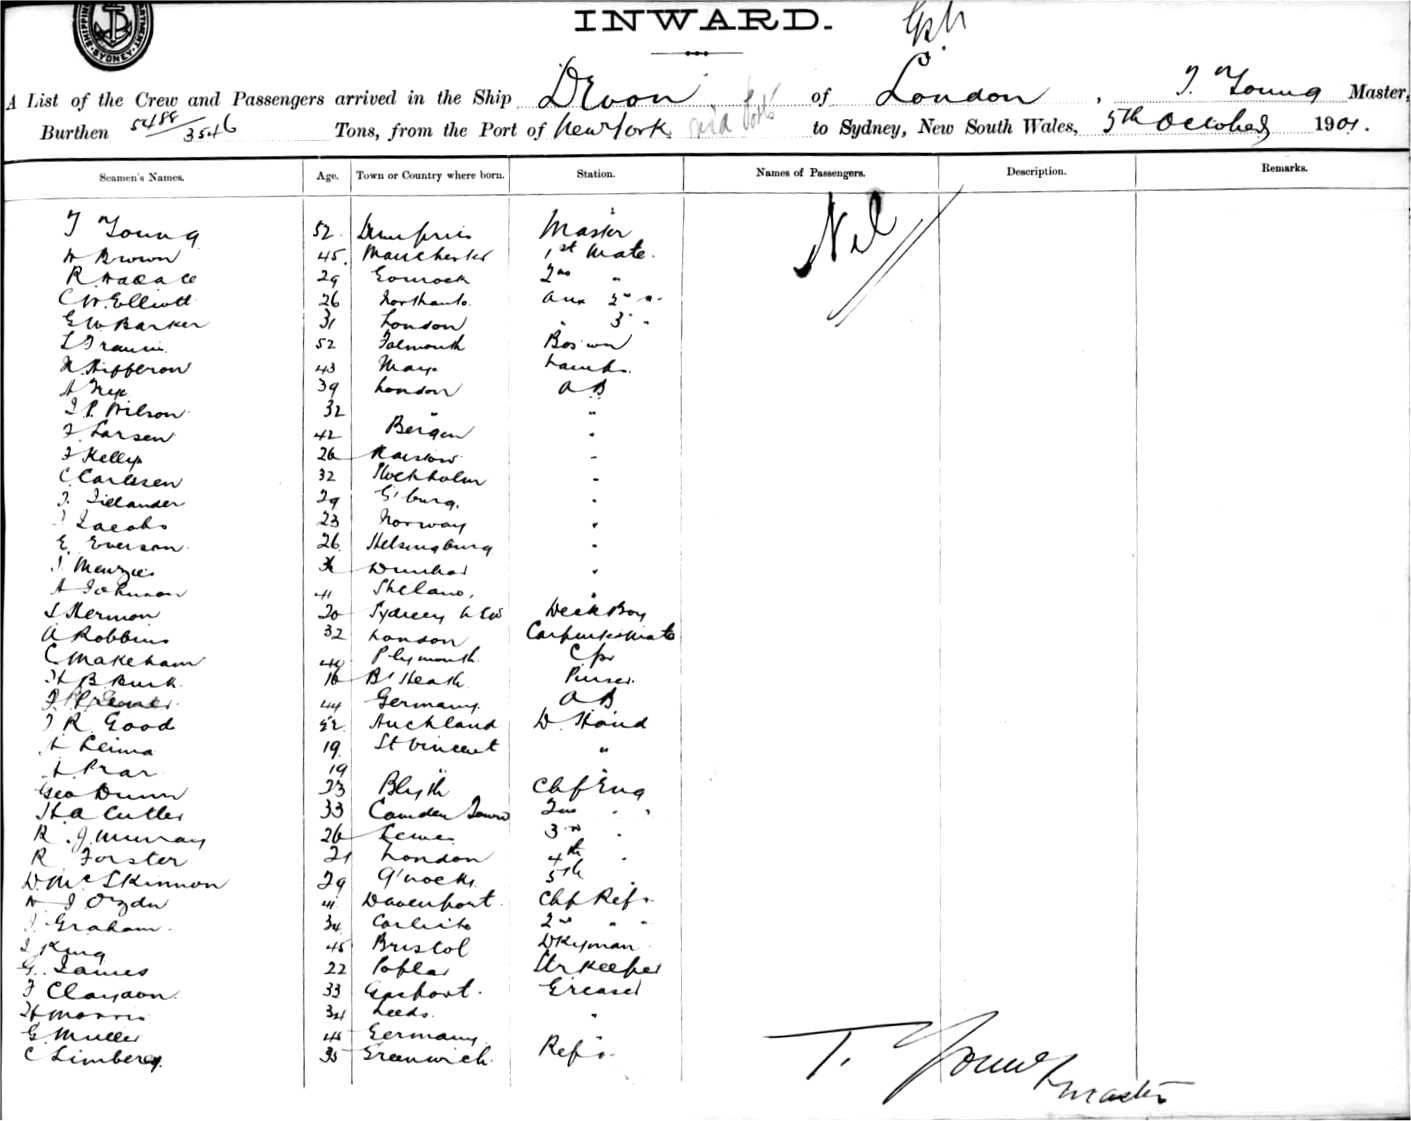 INWARD.
A List of the Crew and Passengers arrived in the Ship Devon of London, T. Young Master,
Burthen 5488/3546 Tons, from the Port of New York via Ports to Sydney, New South Wales, 5th October 1901.
Seamen's Names. Age. Town or Country where born. Station. Names of Passengers. Description. Remarks.
Nil
T Young 52 Dumfries Master
H Brown 45 Manchester 1st Mate.
R Wallace 29 Gourock 2nd "
C W Elliott 26 Northants. 2nd "
E W Barker 31 London " 3 "
52 Falmouth Bos'wn
43 Mayo Lamps.
A Nye 39 London AB
J P. Wilson 32 " "
F. Larsen 42 Bergen "
J Kelly 26 "
C Carlsen 32 Stockholm "
29 G'burg. "
J Jacobs 23 Norway "
E. Everson 26 Helsingburg "
J. Menzies Dunbar "
A Johnson 41 "
S Hermon 20 Sydney Deck Boy
A Robbins 32 London Carpenters Mate
C Makeham 40 Plymouth Cpr
H B Burk 16 Bl Heath Purser
44 Germany AB
J R Good 52 Auckland
19 St Vincent "
19 " "
Geo Dunn 33 Blyth Chf Eng
H A Cutler 33 Camden Town 2nd " "
R. J. Murray 26 Lewes 3rd "
R Forster 21 London 4th "
D. McSkinnon 29 G'nock 5th "
W J Ogden 41 Davenport Chf Refr
J. Graham. 34 2nd " "
J King 45 Bristol Dkyman
G. James 22 Poplar Str Keeper
F Claydon 33 Gosport. Greaser
H Morris 34 Leeds. "
G. Muller 44 Germany
C Limberg. 35 Greenwich. Refr.
T. Young
Master